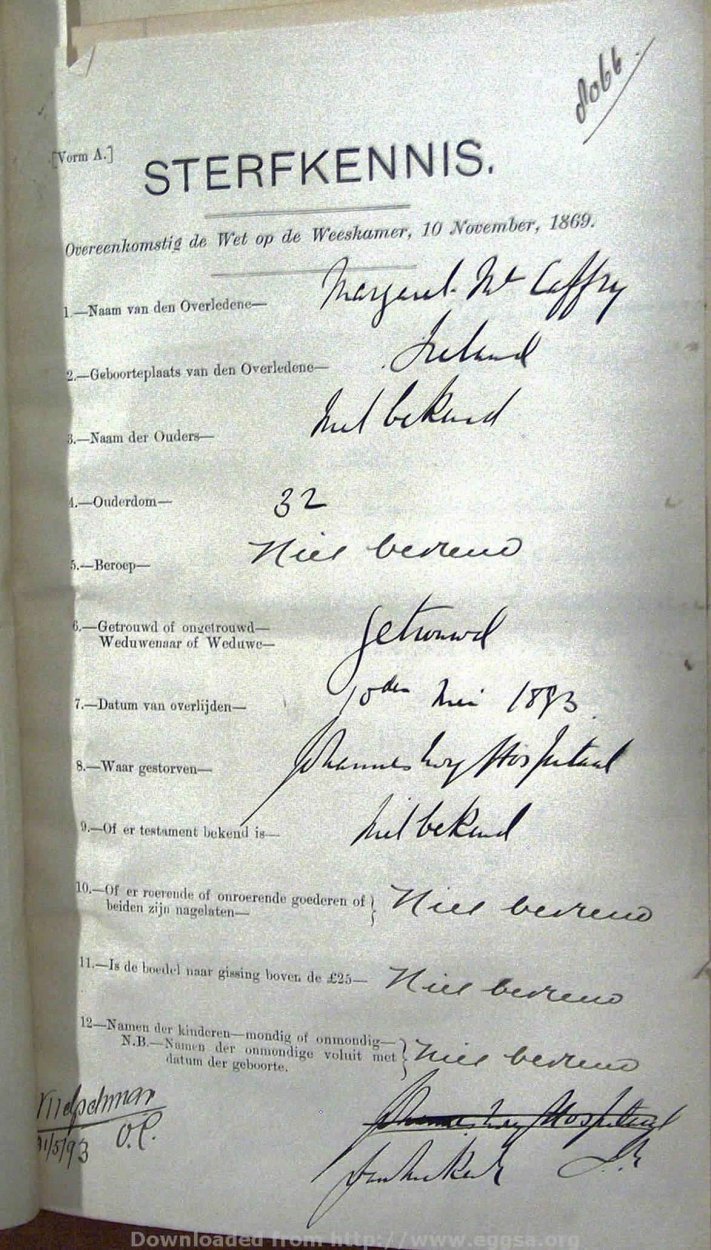 8066
[Vorm A.]
STERFKENNIS.
Overeenkomstig de Wet op de Weeskamer, 10 November, 1869.
1.—Naam van den Overledene— Margaret Mc Caffry
2.—Geboorteplaats van den Overledene— Ireland
3.—Naam der Ouders— Niet bekend
4.—Ouderdom— 32
5.—Beroep— Niet bekend
6.—Getrouwd of ongetrouwd— Getrouwd
Weduwenaar of Weduwe—
7.—Datum van overlijden— Mei 1893
8.—Waar gestorven— Johannesburg Hospitaal
9.—Of er testament bekend is— Niet bekend
10.—Of er roerende of onroerende goederen of } Niet bekend
beiden zijn nagelaten—
11.—Is de boedel naar gissing boven de £25— Niet bekend
12—Namen der kinderen—mondig of onmondig— } Niet bekend
N.B.—Namen der onmondige voluit met
datum der geboorte.
Johannesburg Hospitaal
31/5/93 O.P.
Downloaded from http://www.eggsa.org